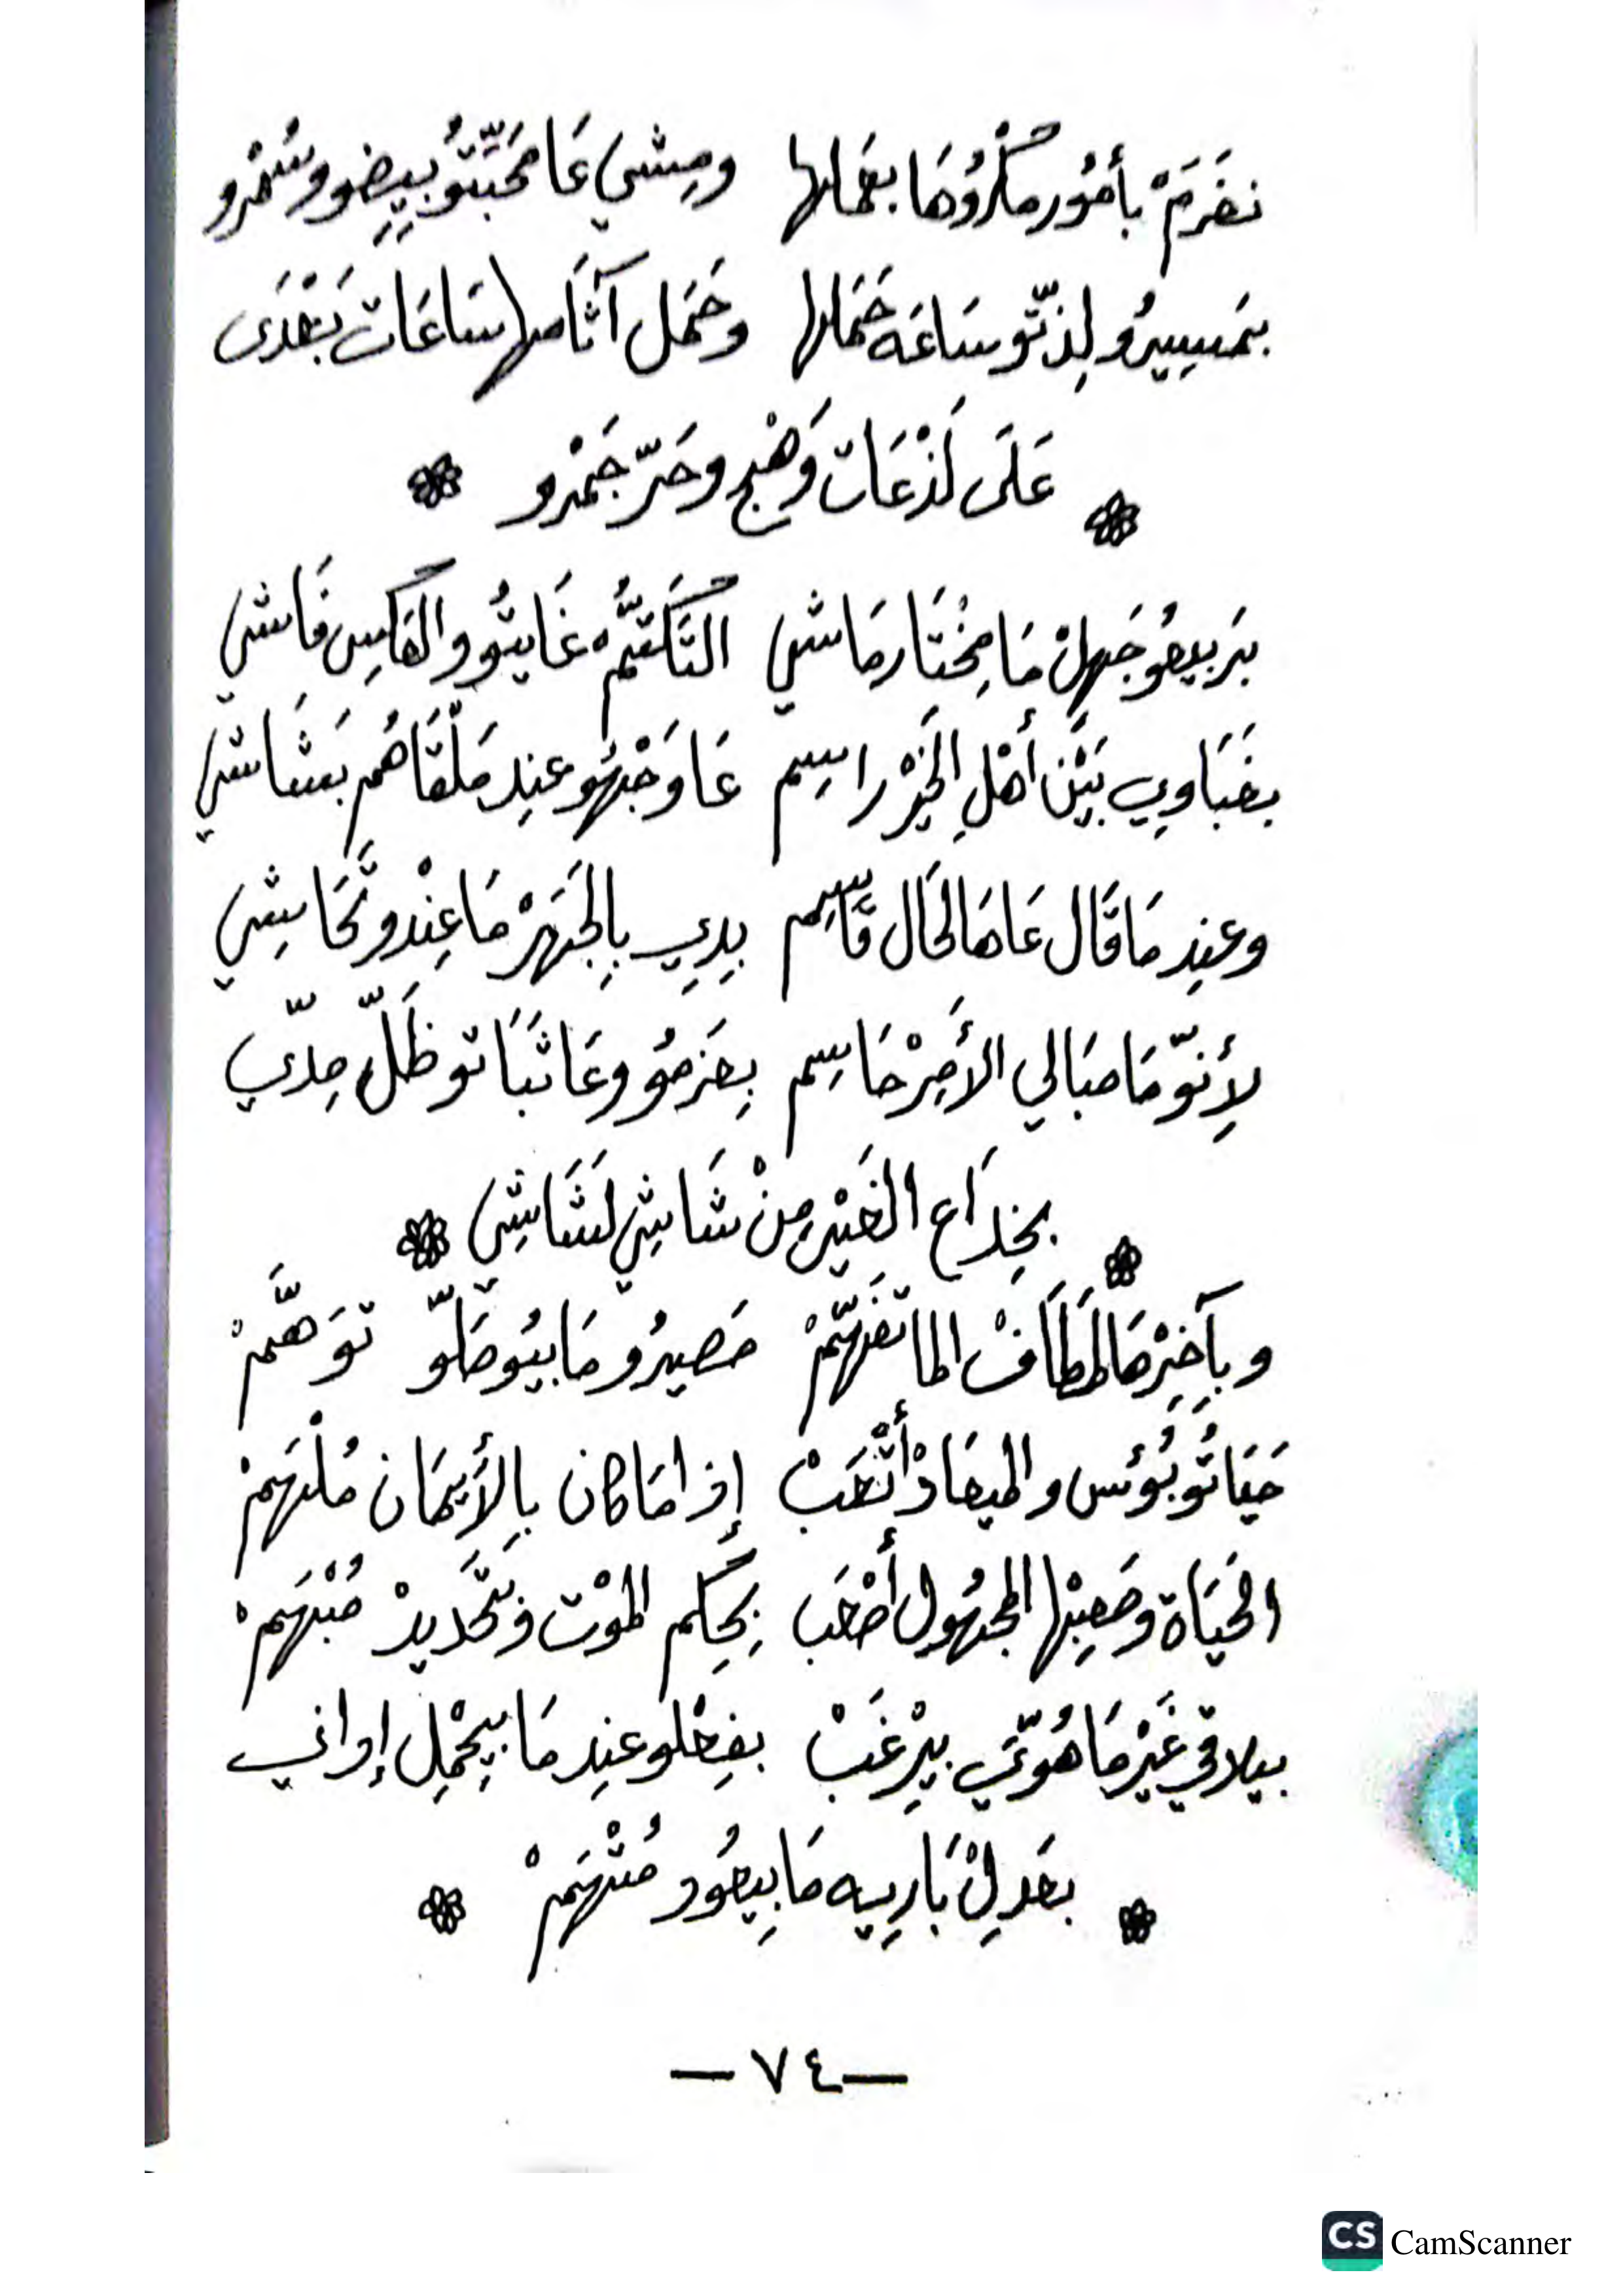 نغرَمْ بأمُور مكرُوُهَا بعَمَلها ومِشي عَا مَحَبّتوُ بيِيِضو وسُمْرو
بمَسِيِرُو لِذّتّو سَاعَه حَمَلها وحَمَل آثَامها سَاعَات بَعْدَى
عَلَى لَذْعَات وَهْج وحَرّ جَمْرو
بَربيعوُ جَهِلْ مَا مِخْتَار مَاشي التَكَتُّم غَايتُو والعَاكِس فَاشي
بغَبَاوِي بَيْن أهْلِ الخَيْر راسِم عَا وَجْهُو عنِد مَلْقَاهُم بَشَاشي
وعنِد مَا قَال عَاهَا لحَال قَاسِم بِدِيِ بِالجَهَرْ مَا عِنْدو تَحَاشِي
لأِنوّ مَا مبَالي الأمِرْ حَاسِم بِعَزمُو وعَا ثَبَاتو ظَلّ مِدّي
بخِدَاع الغَيْر مِنْ شَاشِي لَشَاشِي
وبِآخِرْهَا المَطَافْ الما تفَهّمْ مَصيرُو مَا بيُوصَلّو توَهَّمْ
حيَاتُو بُؤس والميعَادْ أتْعَبْ إذا مَا كان بِالأَيمَان مُلْهَمْ
الحَيَاة وصَعِبْها المجهُول أصْعَب بِحِكم الموْت وتَحْديدْ مُبْهَمْ
بيلاقي غَيْر مَا هُوّي بيْرِغَبْ بفِعْلو عنِد مَا بيِحْمِل إواني
بعَدِلْ بَارِيِه مَا بِيعُود مُتْهَمْ
— ٧٤ —
CS CamScanner